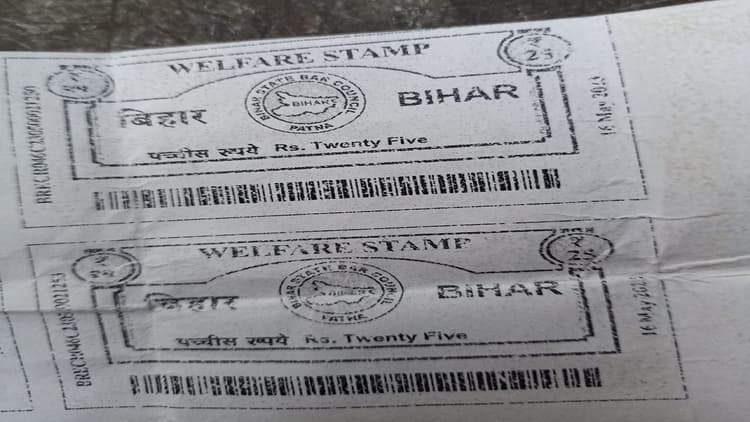 WELFARE STAMP
₹
25
बिहार
BIHAR STATE BAR COUNCIL
BIHAR
PATNA
BIHAR
पच्चीस रुपये Rs. Twenty Five
16 May
WELFARE STAMP
₹
25
बिहार
BIHAR STATE BAR COUNCIL
PATNA
BIHAR
पच्चीस रुपये Rs. Twenty Five
16 May